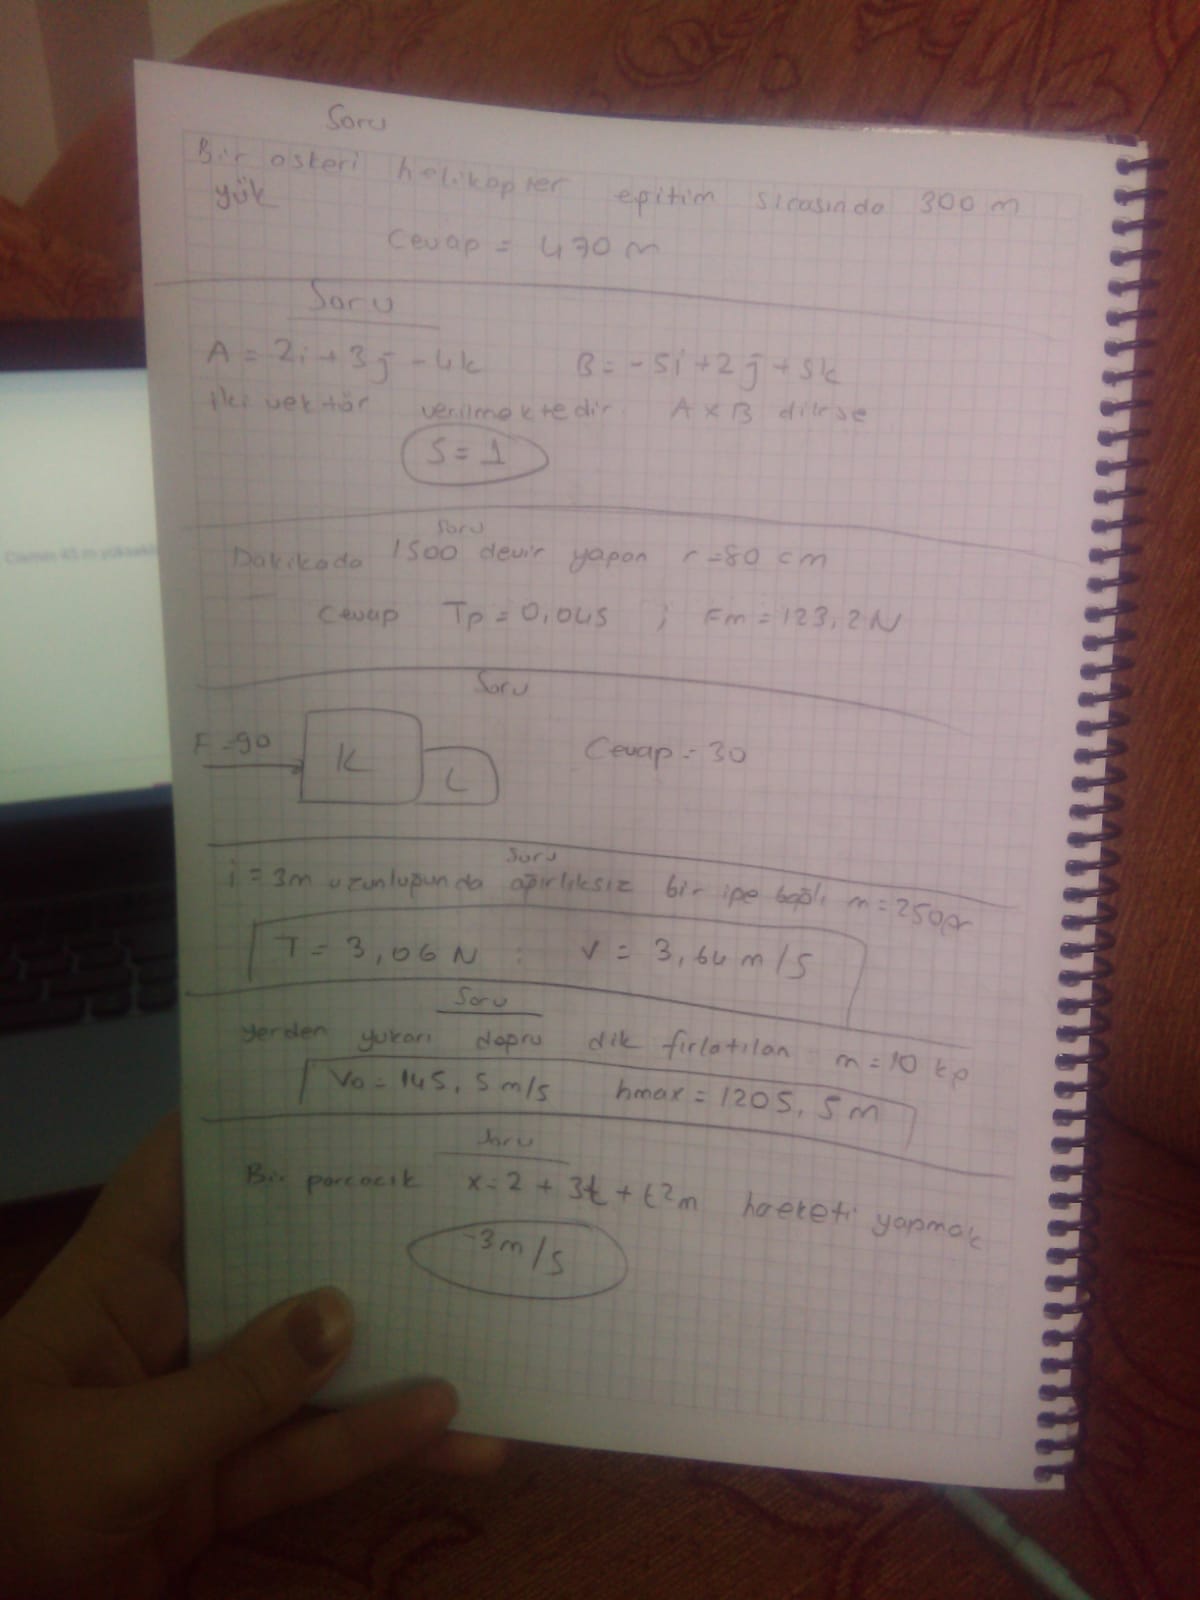 Soru
Bir askeri helikopter eğitim sırasında 300 m
yük
Cevap = 470 m
Soru
A = 2i + 3j - 4k B = -5i + 2j + 5k
iki vektör verilmektedir. A x B dikse
S = 1
Soru
Dakikada 1500 devir yapan r = 80 cm
Cevap Tp = 0,04s ; Fm = 123,2 N
Soru
F = 90 K L Cevap = 30
Soru
i = 3m uzunluğunda ağırlıksız bir ipe bağlı m = 250 gr
T = 3,06 N ; V = 3,64 m/s
Soru
yerden yukarı doğru dik fırlatılan m = 10 kg
Vo = 145,5 m/s hmax = 1205,5 m
Soru
Bir parcacık x = 2 + 3t + t2m haeketi yapmak
-3 m/s